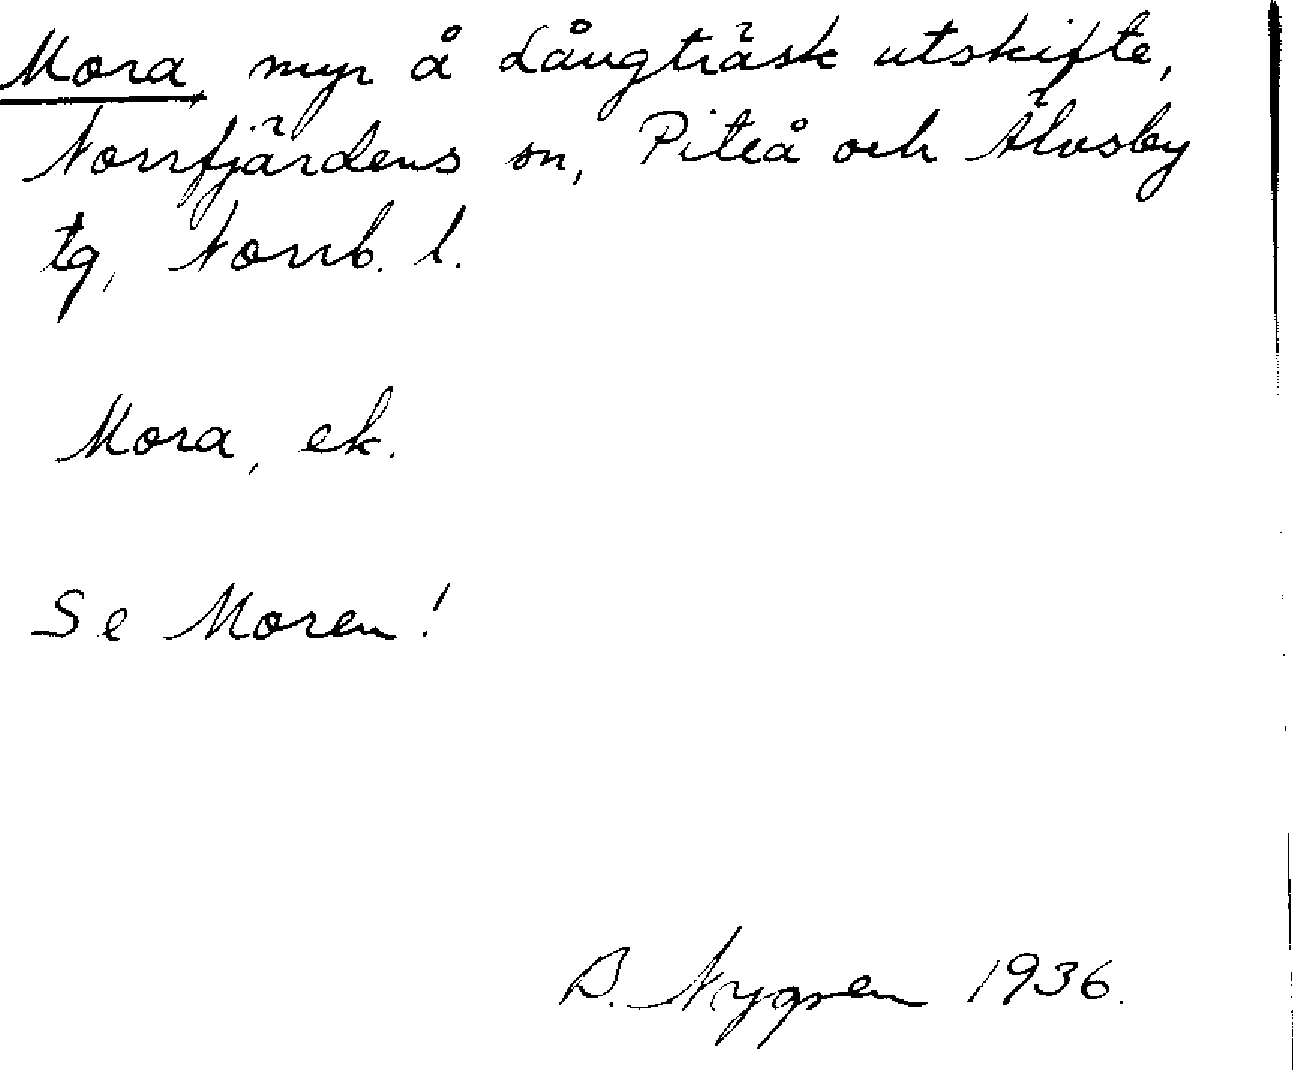 Mora myr å Långträsk utskifte,
Norrfjärdens sn, Piteå och Älvsby
tg, Norrb. l.
Mora, ek.
Se Moren!
B. Nygren 1936.